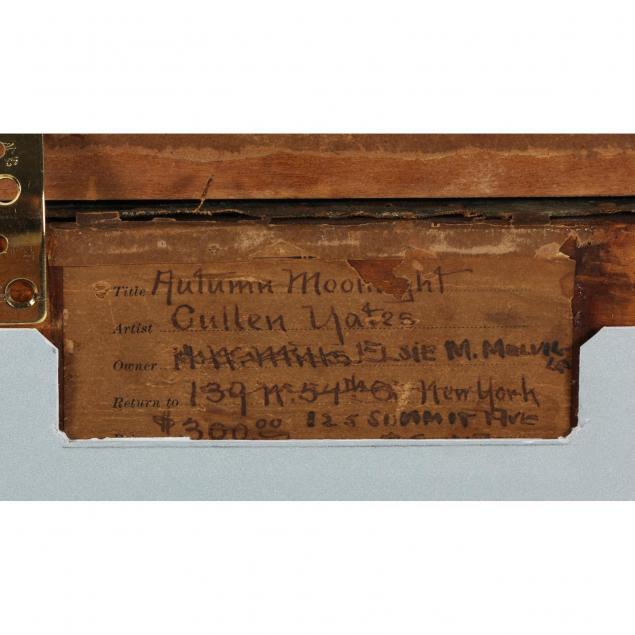 Title Autumn Moonlight
Artist Cullen Yates
Owner ELSIE M. MELVIL
Return to 139 W. 54th St. New York
$300.00 125 SUMMIT AVE